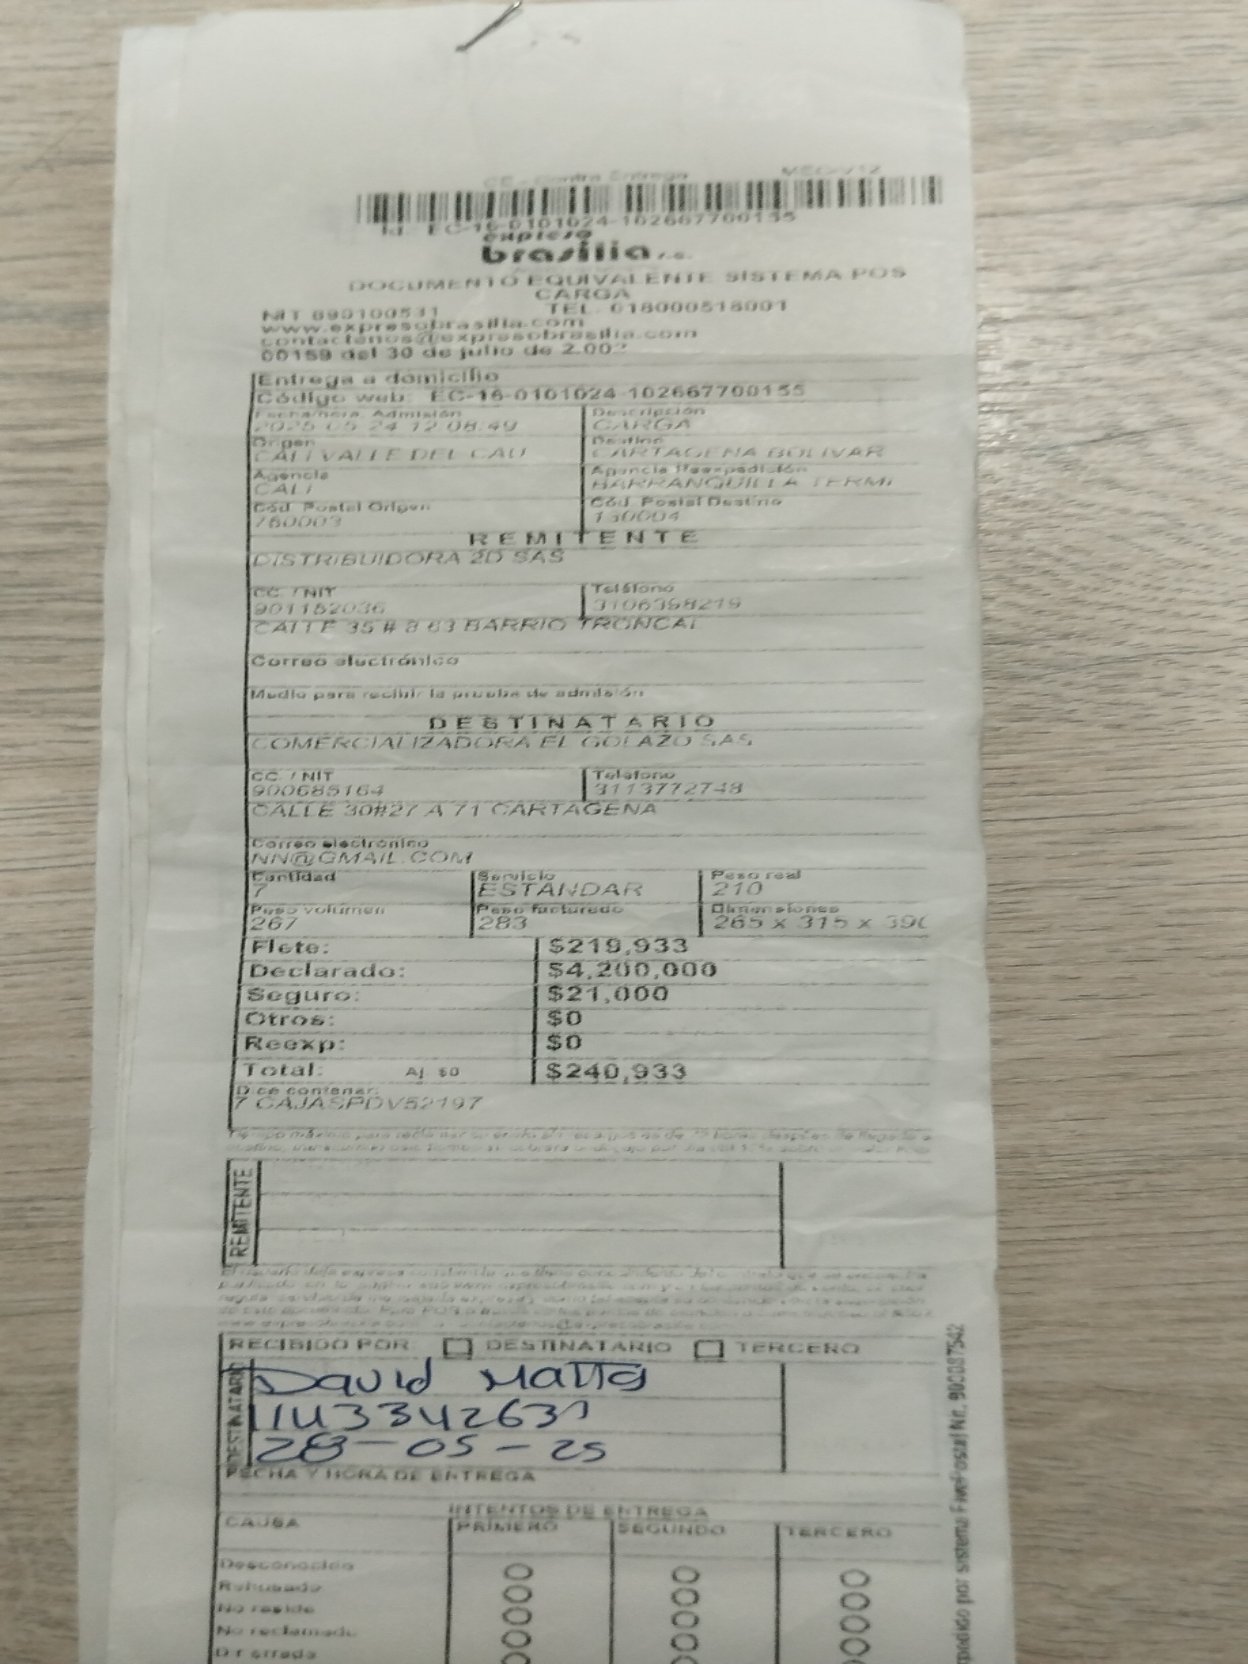 CE - Contra Entrega
Id.: EC-16-0101024-102667700155
expreso
brasilia s.a.
DOCUMENTO EQUIVALENTE SISTEMA POS
CARGA
NIT 890100531 TEL. 018000518001
www.expresobrasilia.com
contactenos@expresobrasilia.com
00159 del 30 de julio de 2.002
Entrega a domicilio
Código web: EC-16-0101024-102667700155
Fecha/hora Admisión Descripción
2025-05-24 12:08:49 CARGA
Origen Destino
CALI VALLE DEL CAU CARTAGENA BOLIVAR
Agencia Agencia Reexpedición
CALI BARRANQUILLA TERMI
Cód. Postal Origen Cód. Postal Destino
760003 130004
REMITENTE
DISTRIBUIDORA 2D SAS
CC. / NIT Teléfono
901152036 3106398219
CALLE 35 # 8 63 BARRIO TRONCAL
Correo electrónico
Medio para recibir la prueba de admisión
DESTINATARIO
COMERCIALIZADORA EL GOLAZO SAS
CC. / NIT Teléfono
900685164 3113772748
CALLE 30#27 A 71 CARTAGENA
Correo electrónico
NN@GMAIL.COM
Cantidad Servicio Peso real
7 ESTANDAR 210
Peso volúmen Peso facturado Dimensiones
267 283 265 x 315 x 390
Flete: $219,933
Declarado: $4,200,000
Seguro: $21,000
Otros: $0
Reexp: $0
Total: Aj $0 $240,933
Dice contener:
7 CAJASPDV52197
REMITENTE
RECIBIDO POR DESTINATARIO TERCERO
DESTINATARIO
David Matta
28-05-25
FECHA Y HORA DE ENTREGA
INTENTOS DE ENTREGA
CAUSA PRIMERO SEGUNDO TERCERO
Desconocido
Rehusado
No reside
No reclamado
Dir errada
por sistema FivePostal Nit. 900087542